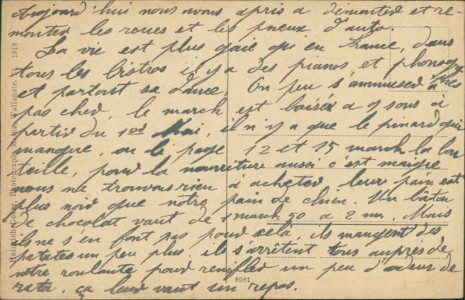 Aujourd'hui nous avons apris a dimonter et re-
monter les roues et les pneux d'auto.
La vie est plus gaie qu en France, dans
tous les bistros il y a des pianos et phonog
et partout sa dance. On peu s'ammuser
pas cher, le march est baisser a 9 sous à
partir du 1er Mai, il n'y a que le pinard qui
manque, on le paye 12 et 15 march la bou
teille, pour la nourriture aussi c'est maigre
nous ne trouvons rien d'acheter, leur pain est
plus noir que notre pain de chien. Un bâton
de chocolat vaut de 1 march 50 a 2 m. Mais
ils ne s'en font pas pour cela, ils mangent des
patates un peu plus. ils s'arrêtent tous auprès de
notre roulante pour renifler un peu d'odeur de
rata, ça leur vaut un repas.
1919
6081